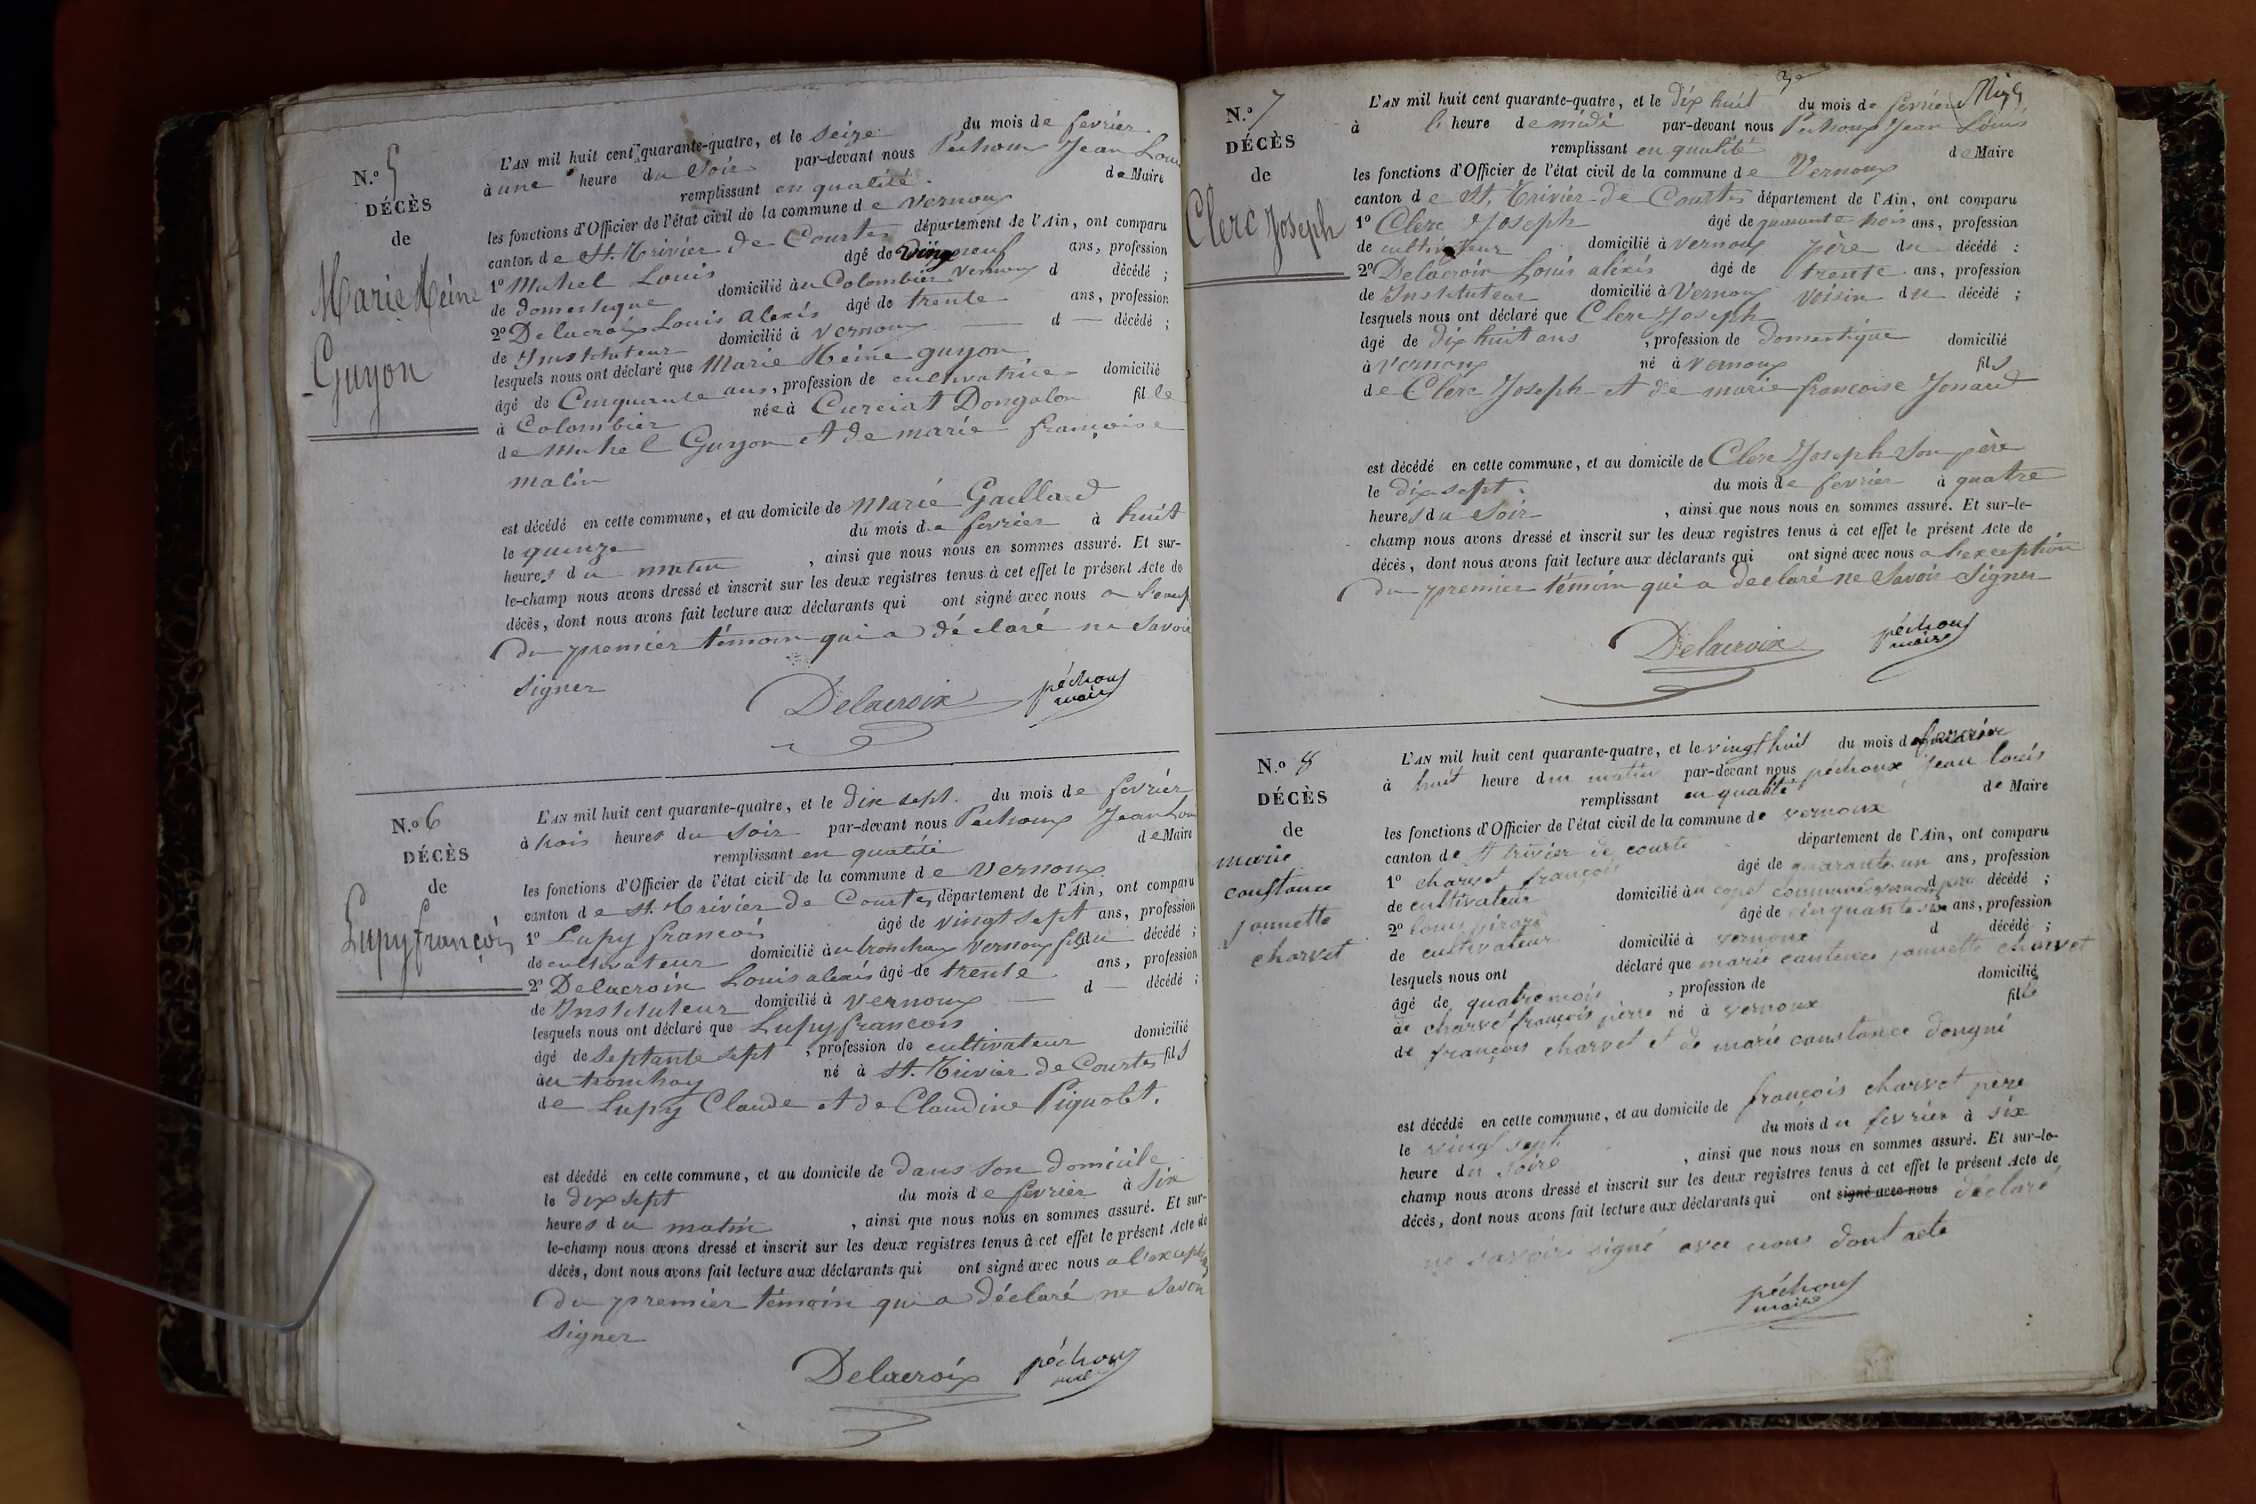 N.o 5
DÉCÈS
de
Marie Reine
Guyon
L'AN mil huit cent quarante-quatre, et le seize du mois de fevrier
à une heure du Soir par-devant nous Pechoux Jean Louis
remplissant en qualité de Maire
les fonctions d'Officier de l'état civil de la commune de Vernoux
canton de St. Trivier de Courtes département de l'Ain, ont comparu
1º Michel Louis âgé de vingt neuf ans, profession
de domestique domicilié au Colombier Vernoux d décédé ;
2º Delacroix Louis alexis âgé de trente ans, profession
de Instituteur domicilié à Vernoux d — décédé ;
lesquels nous ont déclaré que Marie Reine guyon
âgé de Cinquante ans, profession de cultivatrice domicilié
à Colombier née à Curciat Dongalon fille
de Michel Guyon et de marie françoise
matin
est décédé en cette commune, et au domicile de Marie Gaillard
le quinze du mois de fevrier à huit
heures du matin , ainsi que nous nous en sommes assuré. Et sur-
le-champ nous avons dressé et inscrit sur les deux registres tenus à cet effet le présent Acte de
décès, dont nous avons fait lecture aux déclarants qui ont signé avec nous a l'excep
du premier témoin qui a déclaré ne Savoir
signer
Delacroix péchoux
maire
N.o 6
DÉCÈS
de
Lupy françois
L'AN mil huit cent quarante-quatre, et le dix sept. du mois de fevrier
à trois heures du Soir par-devant nous Pechoux Jean Lou
remplissant en qualité de Maire
les fonctions d'Officier de l'état civil de la commune de Vernoux
canton de St. Trivier de Courtes département de l'Ain, ont comparu
1º Lupy francois âgé de vingt sept ans, profession
de cultivateur domicilié au tronchay Vernoux fils du décédé ;
2º Delacroix Louis alexis âgé de trente ans, profession
de Instituteur domicilié à Vernoux — d — décédé ;
lesquels nous ont déclaré que Lupy francois
âgé de septante sept , profession de cultivateur domicilié
au tronchay né à St. Trivier de Courtes fils
de Lupy Claude et de Claudine Piquolet.
est décédé en cette commune, et au domicile de dans son domicile
le dix sept du mois de fevrier à Six
heures du matin , ainsi que nous nous en sommes assuré. Et sur-
le-champ nous avons dressé et inscrit sur les deux registres tenus à cet effet le présent Acte de
décès, dont nous avons fait lecture aux déclarants qui ont signé avec nous a l'exception
du premier témoin qui a déclaré ne Savoir
signer
Delacroix péchoux
maire
N.o 7
DÉCÈS
de
Clerc Joseph
L'AN mil huit cent quarante-quatre, et le dix huit du mois de fevrier
à l' heure de midi par-devant nous Pechoux Jean Louis
remplissant en qualité de Maire
les fonctions d'Officier de l'état civil de la commune de Vernoux
canton de St. Trivier de Courtes département de l'Ain, ont comparu
1º Clerc Joseph âgé de quarante trois ans, profession
de cultivateur domicilié à Vernoux père du décédé :
2º Delacroix Louis alexis âgé de trente ans, profession
de Instituteur domicilié à Vernoux voisin du décédé ;
lesquels nous ont déclaré que Clerc Joseph
âgé de dix huit ans , profession de domestique domicilié
à Vernoux né à Vernoux fils
de Clerc Joseph et de marie francoise Jonard
est décédé en cette commune, et au domicile de Clerc Joseph Son père
le dix sept. du mois de fevrier à quatre
heures du Soir , ainsi que nous nous en sommes assuré. Et sur-le-
champ nous avons dressé et inscrit sur les deux registres tenus à cet effet le présent Acte de
décès, dont nous avons fait lecture aux déclarants qui ont signé avec nous a l'exception
du premier témoin qui a déclaré ne Savoir Signer
Delacroix péchoux
maire
N.o 8
DÉCÈS
de
marie
constance
jannette
charvet
L'AN mil huit cent quarante-quatre, et le vingt huit du mois de fevrier
à huit heure du matin par-devant nous péchoux jean louis
remplissant en qualité de Maire
les fonctions d'Officier de l'état civil de la commune de vernoux
canton de St trivier de courte département de l'Ain, ont comparu
1º charvet françois âgé de quarante un ans, profession
de cultivateur domicilié au commune vernoux d père décédé ;
2º louis âgé de cinquante six ans, profession
de cultivateur domicilié à vernoux d décédé ;
lesquels nous ont déclaré que marie jannette charvet
âgé de quatre mois , profession de domicilié
de charvet françois père né à vernoux fille
de françois charvet et de marie constance
est décédé en cette commune, et au domicile de françois charvet père
le vingt sept du mois du fevrier à six
heure du soire , ainsi que nous nous en sommes assuré. Et sur-le-
champ nous avons dressé et inscrit sur les deux registres tenus à cet effet le présent Acte de
décès, dont nous avons fait lecture aux déclarants qui ont signé avec nous déclaré
ne savoire signé avec nous dont acte
péchoux
maire